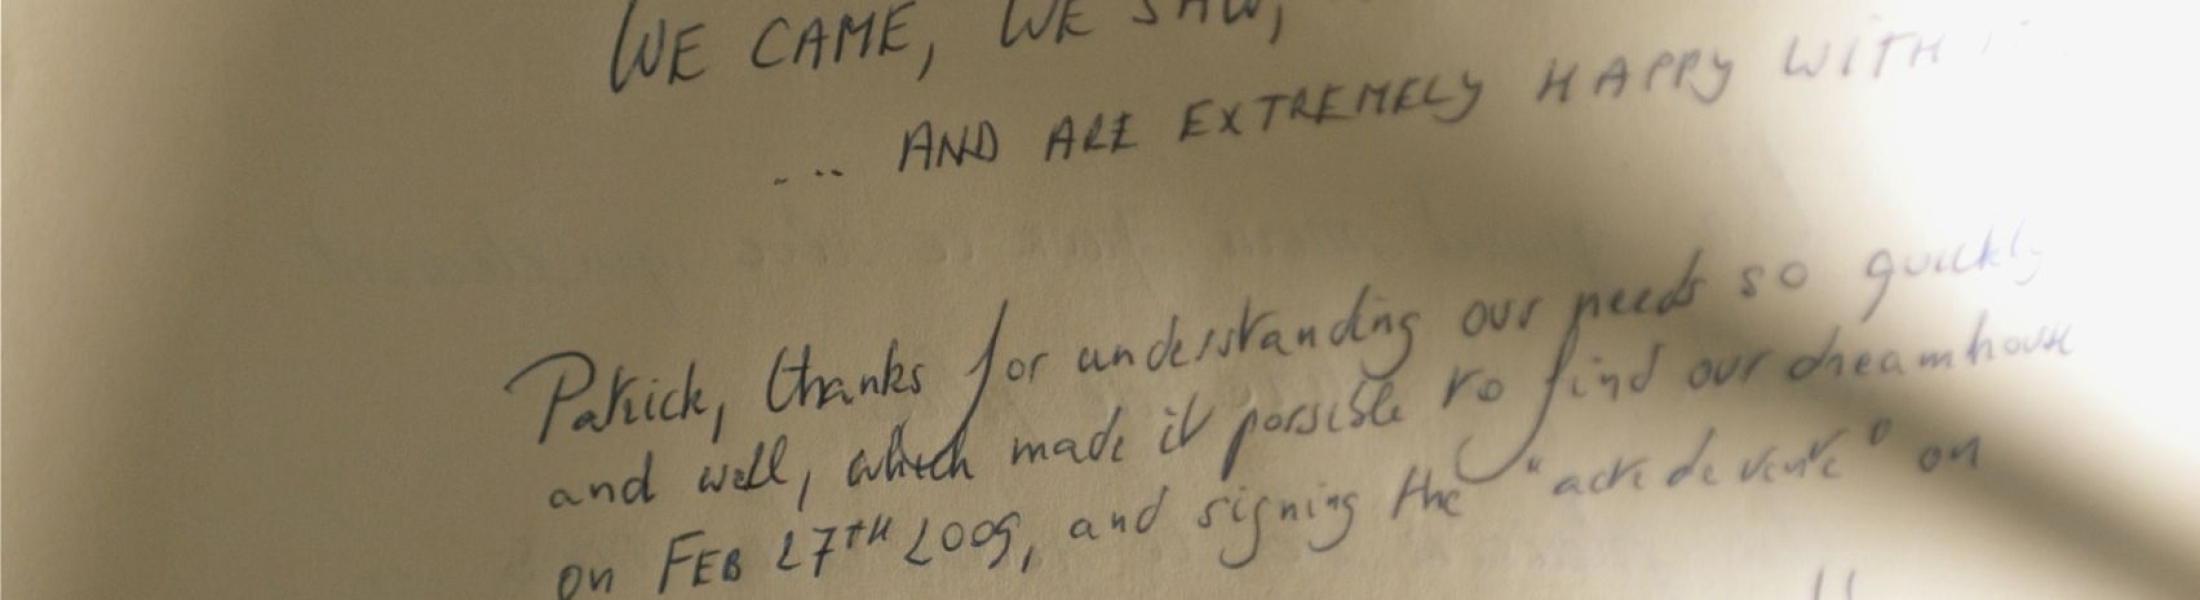 WE CAME, WE SAW,
... AND ARE EXTREMELY HAPPY WITH
Patrick, thanks for understanding our needs so quickly
and well, which made it possible to find our dreamhouse
on FEB 27TH 2009, and signing the "acte de vente" on